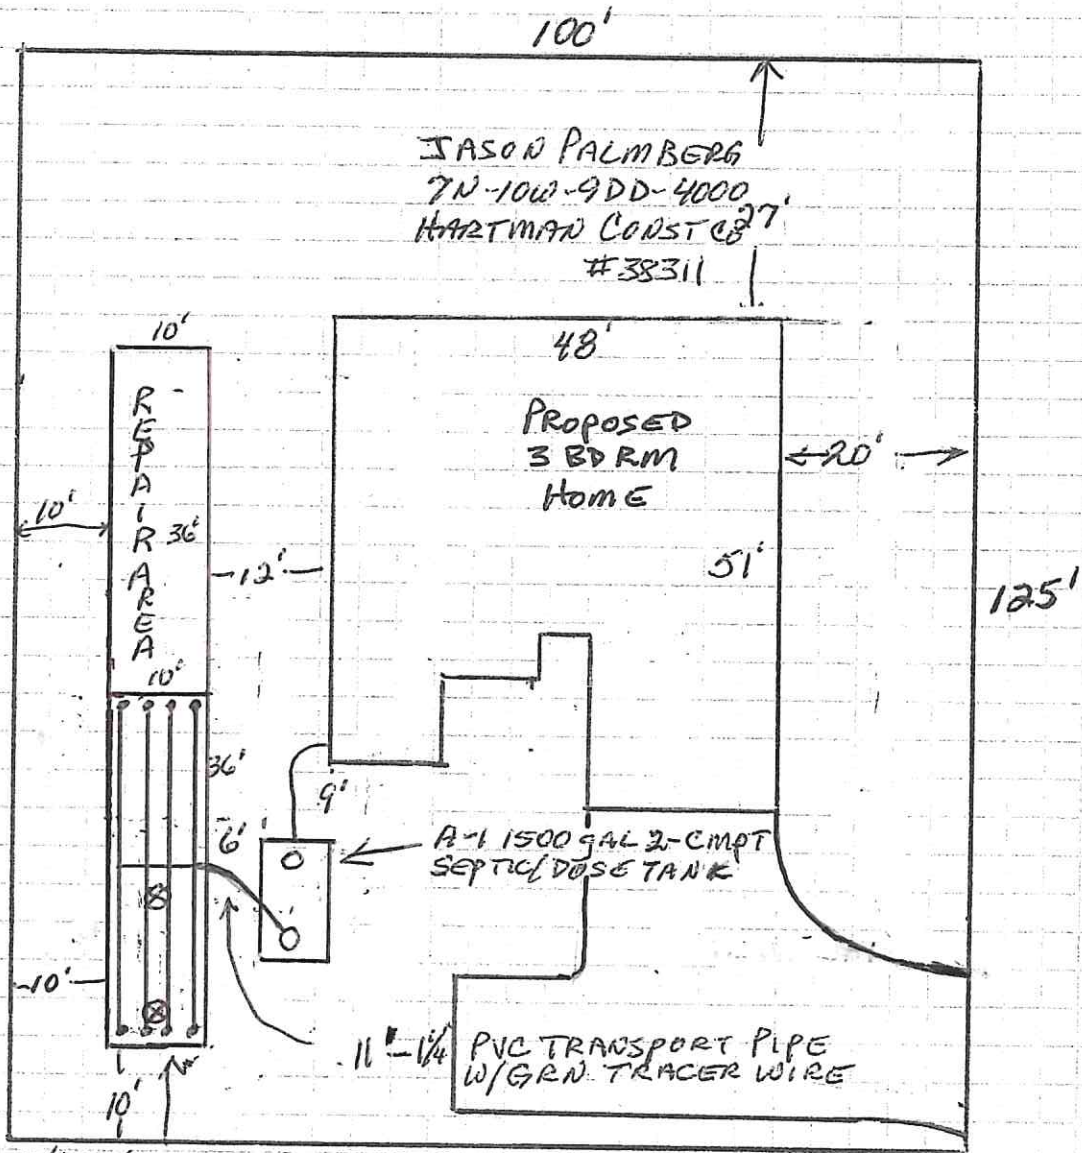 100'
JASON PALMBERG
7N-10W-9DD-4000
HARTMAN CONST CO
27'
#38311
10'
48'
REPAIR AREA
PROPOSED
3 BDRM
HOME
20'
10'
36'
12'
51'
125'
10'
36'
9'
6'
A-1 1500 GAL 2-CMPT
SEPTIC/DOSE TANK
10'
11'-1¼" PVC TRANSPORT PIPE
W/GRN TRACER WIRE
10'